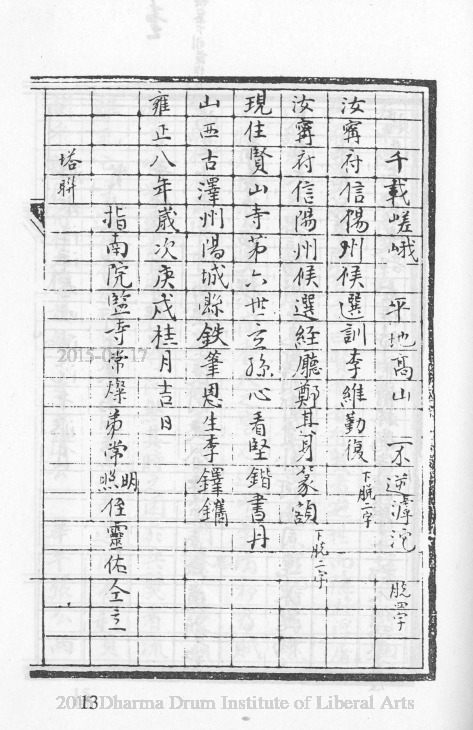 千載嵯峨 平地高山 一不逆滹沱 脫四字
汝寗府信陽州候選訓李維勤復 下脫二字
汝寗府信陽州候選經廳鄭其身篆額 下脫二字
現住賢山寺第六世玄孫心看堅鍇書丹
山西古澤州陽城縣鉄筆恩生李鐸鐫
雍正八年歲次庚戌桂月吉日
指南院監寺常燦弟常明照侄靈佑仝立
塔聨
2015-04-17
13
Dharma Drum Institute of Liberal Arts